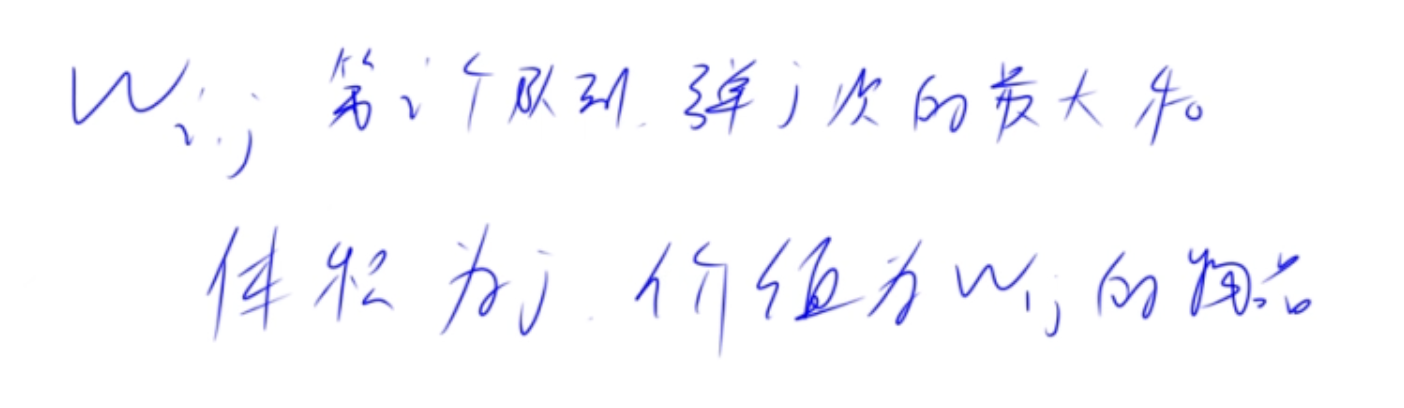 W i,j 第 i 个 队列 弹 j 次 的 最大 和
体积 为 j 价值为 W i,j 的 物品